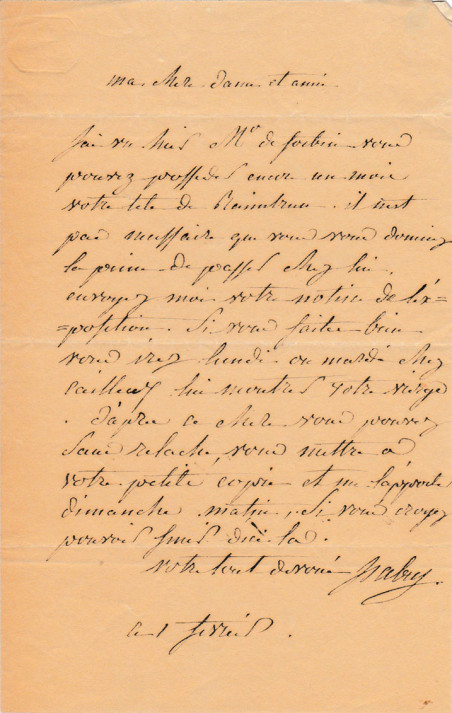 ma chere dame et amie
J'ai vu hier Mr de forbin vous
pouvez posseder encor un mois
votre tete de Raimbrun. il n'est
pas nessessaire que vous vous donniez
la peine de passer chez lui.
envoyez moi votre notice de l'ex=
=position. Si vous faites bien
vous irez lundi ou mardi chez
Cailleux lui montrer votre vierge
. d'apres ce chere vous pouvez
sans relache, vous mettre a
votre petite copie et me l'apporter
dimanche matin, Si vous croyez
pouvoir finir d'ici la.
votre tout devoué
ce 1 fevrier.